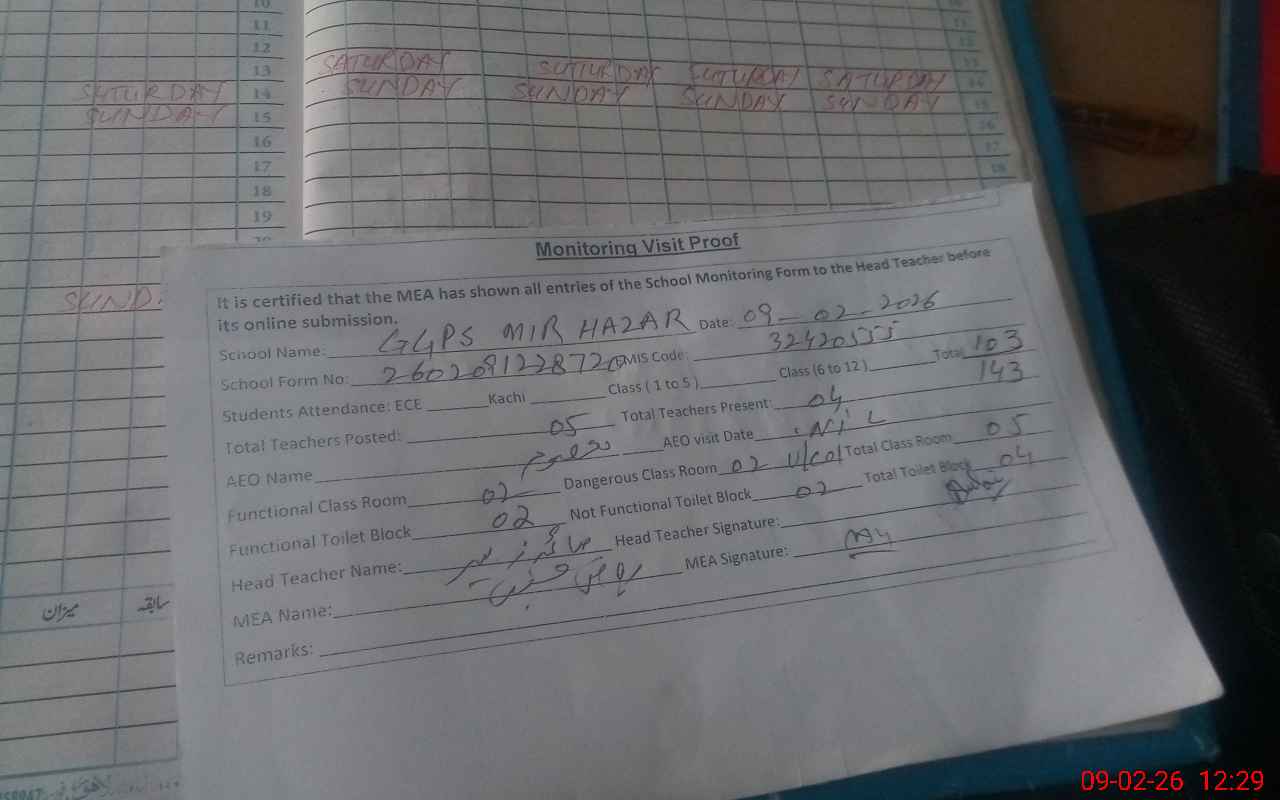 10
11
12
13
14
15
16
17
18
19
SATURDAY SUTURDAY SUTURDAY SATURDAY
SUTURDAY SUNDAY SUNDAY SUNDAY SUNDAY
SUNDAY
SUND
Monitoring Visit Proof
It is certified that the MEA has shown all entries of the School Monitoring Form to the Head Teacher before
its online submission.
School Name: GGPS MIR HAZAR Date: 09-02-2026
School Form No: EMIS Code: 32420555
Students Attendance: ECE Kachi Class ( 1 to 5 ) Class (6 to 12 ) Total 103
143
Total Teachers Posted: 05 Total Teachers Present: 04
AEO Name AEO visit Date Nil
Functional Class Room 02 Dangerous Class Room 02 Total Class Room 05
Functional Toilet Block 02 Not Functional Toilet Block 02 Total Toilet Block 04
Head Teacher Name: Head Teacher Signature:
MEA Name: MEA Signature:
Remarks:
میزان سابقہ
09-02-26 12:29